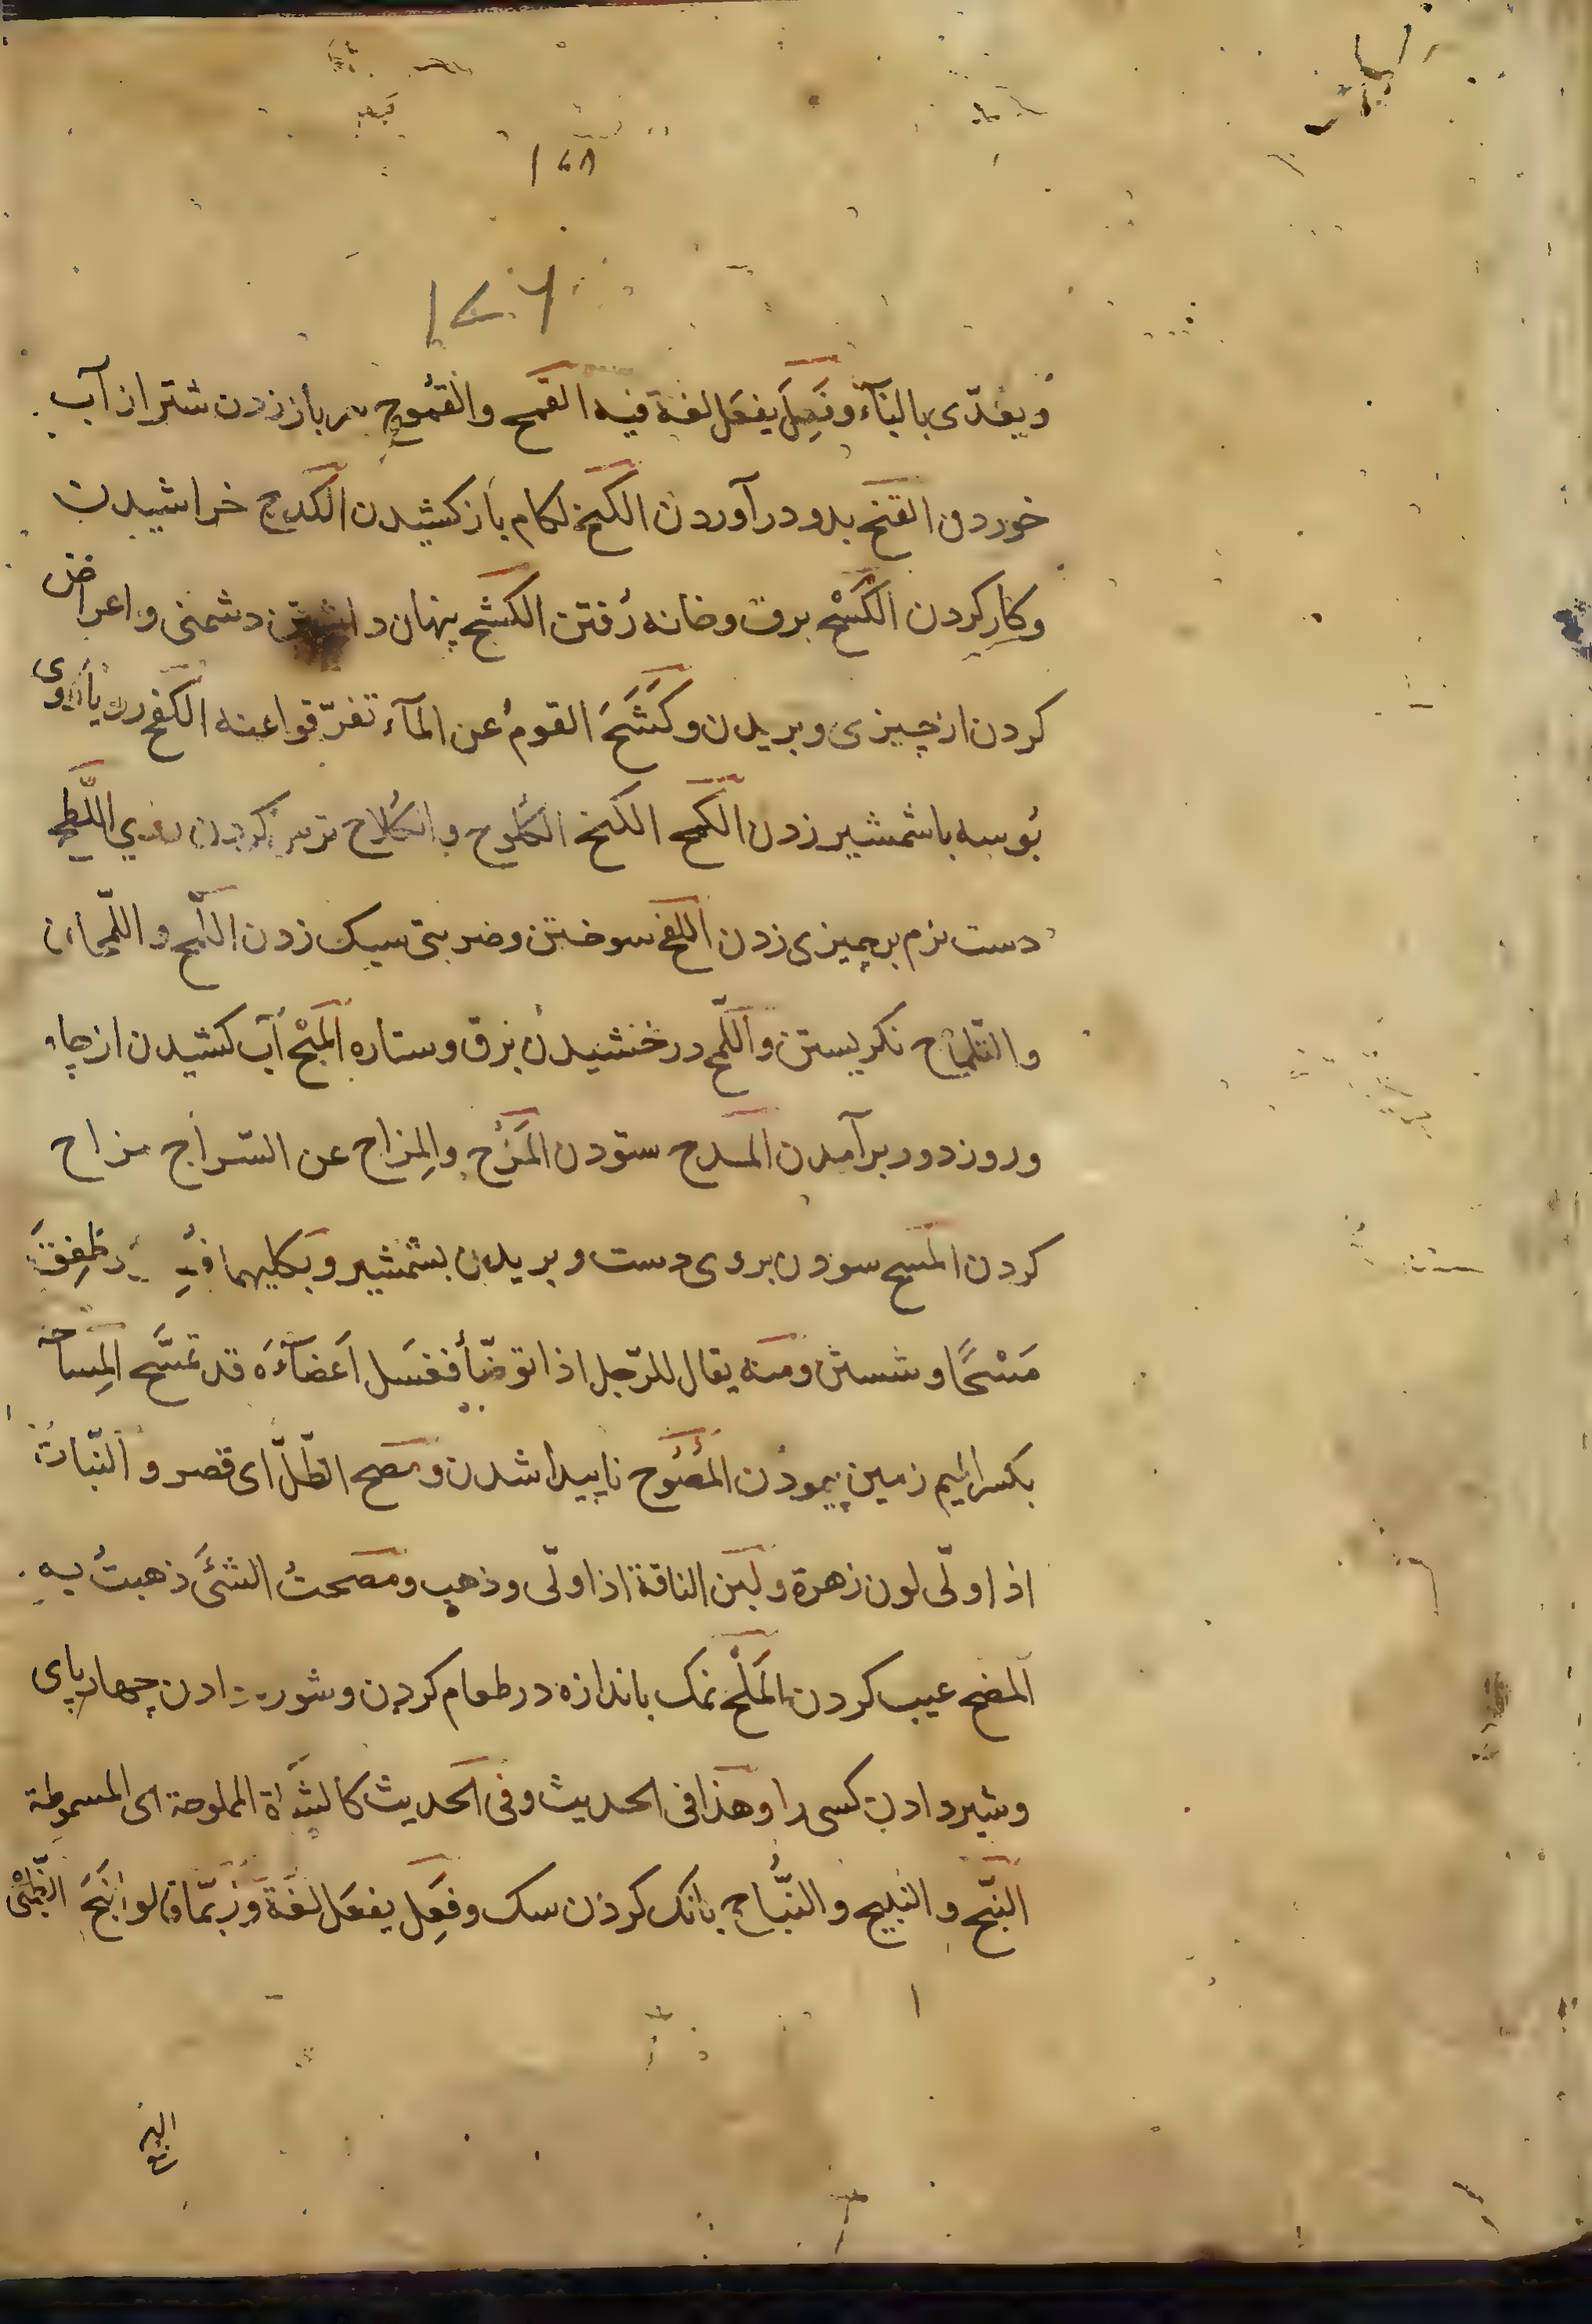 ۱۶۸
۱۷۶
ويعدّى بالبآء وفَعِلَ يفعَل لغة فيه القمح والقُمُوح سر باز زدن شتر از آب
خوردن القنح بدو در آوردن الكبح لكام باز كشيدن الكدح خراشيدن
وكار كردن الكَسْح برف وخانه رُفتن الكشح پنهان داشتن دشمنى واعراض
كردن از چيزى وبريدن وكَشَحَ القومُ عن المآء تفرّقوا عنه الكفح روياروى
بوسه با شمشير زدن الكمح الكبح الكلوح والكُلاح ترش كردن روى اللَّطح
دست نرم بر چيزى زدن اللفح سوختن وضربتى سبك زدن اللّمح واللّمحان
والتّلماح نكريستن واللّمح درخشيدن برق وستاره المَتْح آب كشيدن از چاه
وروز دور برآمدن المدح ستودن المَزْح والمِزاح عن السّراج مزاح
كردن المسح سودن بروى دست وبريدن بشمشير وبكليهما فُسِّر فطفِقَ
مَسْحًا وشستن ومنه يقال للرّجل اذا توضّأ فغسَل اَعضآءَه قد تمسَّح المِساحة
بكسر الميم زمين پيمودن المُصُوح ناپيدا شدن ومصح الظّلّ اى قصر والنّبات
اذا ولّى لون زهرة ولبن الناقة اذا ولّى وذهب ومصحتُ الشئَ ذهبتُ به
المضح عيب كردن المَلْح نمك باندازه در طعام كردن وشوره دادن چهارپاى
وشير دادن كسى را وهذا فى الحديث وفى الحديث كالشاة المملوحة اى المسموطة
النّبح والنبيح والنُّباح بانك كردن سك وفَعِل يفعَل لغة ورُبّما قالو انبَحَ الظّبْىُ